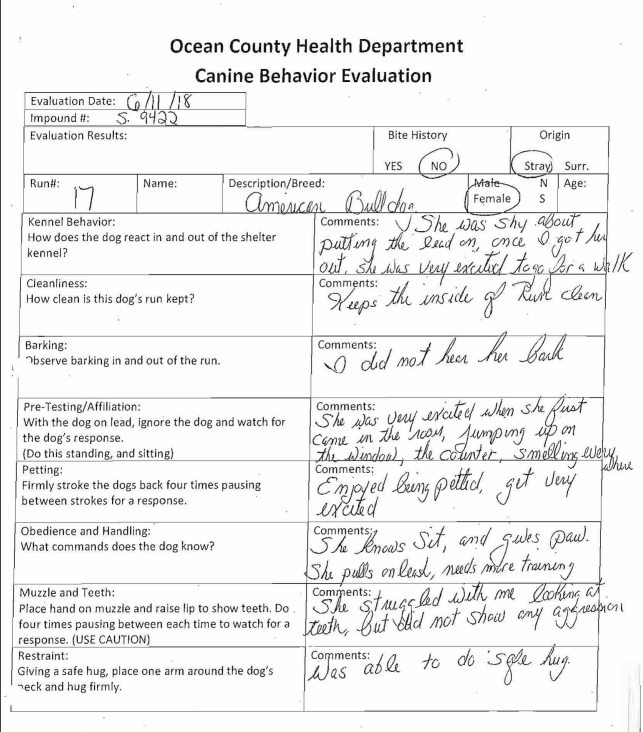 Ocean County Health Department
Canine Behavior Evaluation
Evaluation Date: 6/11/18
Impound #: S. 9422
Evaluation Results:
Bite History
Origin
YES NO
Stray Surr.
Run#: 17
Name:
Description/Breed: American Bulldog
Male N
Female S
Age:
Kennel Behavior:
How does the dog react in and out of the shelter
kennel?
Comments: She was shy about
putting the lead on, once I got her
out, she was very excited to go for a walk
Cleanliness:
How clean is this dog's run kept?
Comments:
Keeps the inside of Run clean
Barking:
Observe barking in and out of the run.
Comments:
I did not hear her bark
Pre-Testing/Affiliation:
With the dog on lead, ignore the dog and watch for
the dog's response.
(Do this standing, and sitting)
Comments:
She was very excited when she first
came in the room, jumping up on
the window, the counter, smelling everywhere
Petting:
Firmly stroke the dogs back four times pausing
between strokes for a response.
Comments:
Enjoyed being petted, get very
excited
Obedience and Handling:
What commands does the dog know?
Comments:
She knows Sit, and gives paw.
She pulls on leash, needs more training
Muzzle and Teeth:
Place hand on muzzle and raise lip to show teeth. Do
four times pausing between each time to watch for a
response. (USE CAUTION)
Comments:
She struggled with me looking at
teeth, but did not show any aggression
Restraint:
Giving a safe hug, place one arm around the dog's
neck and hug firmly.
Comments:
Was able to do safe hug.